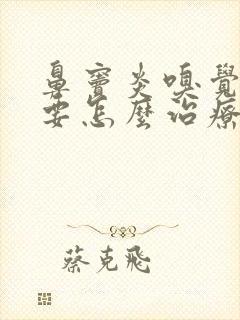 鼻竇炎嗅覺
要怎麼治療
蔡克飛